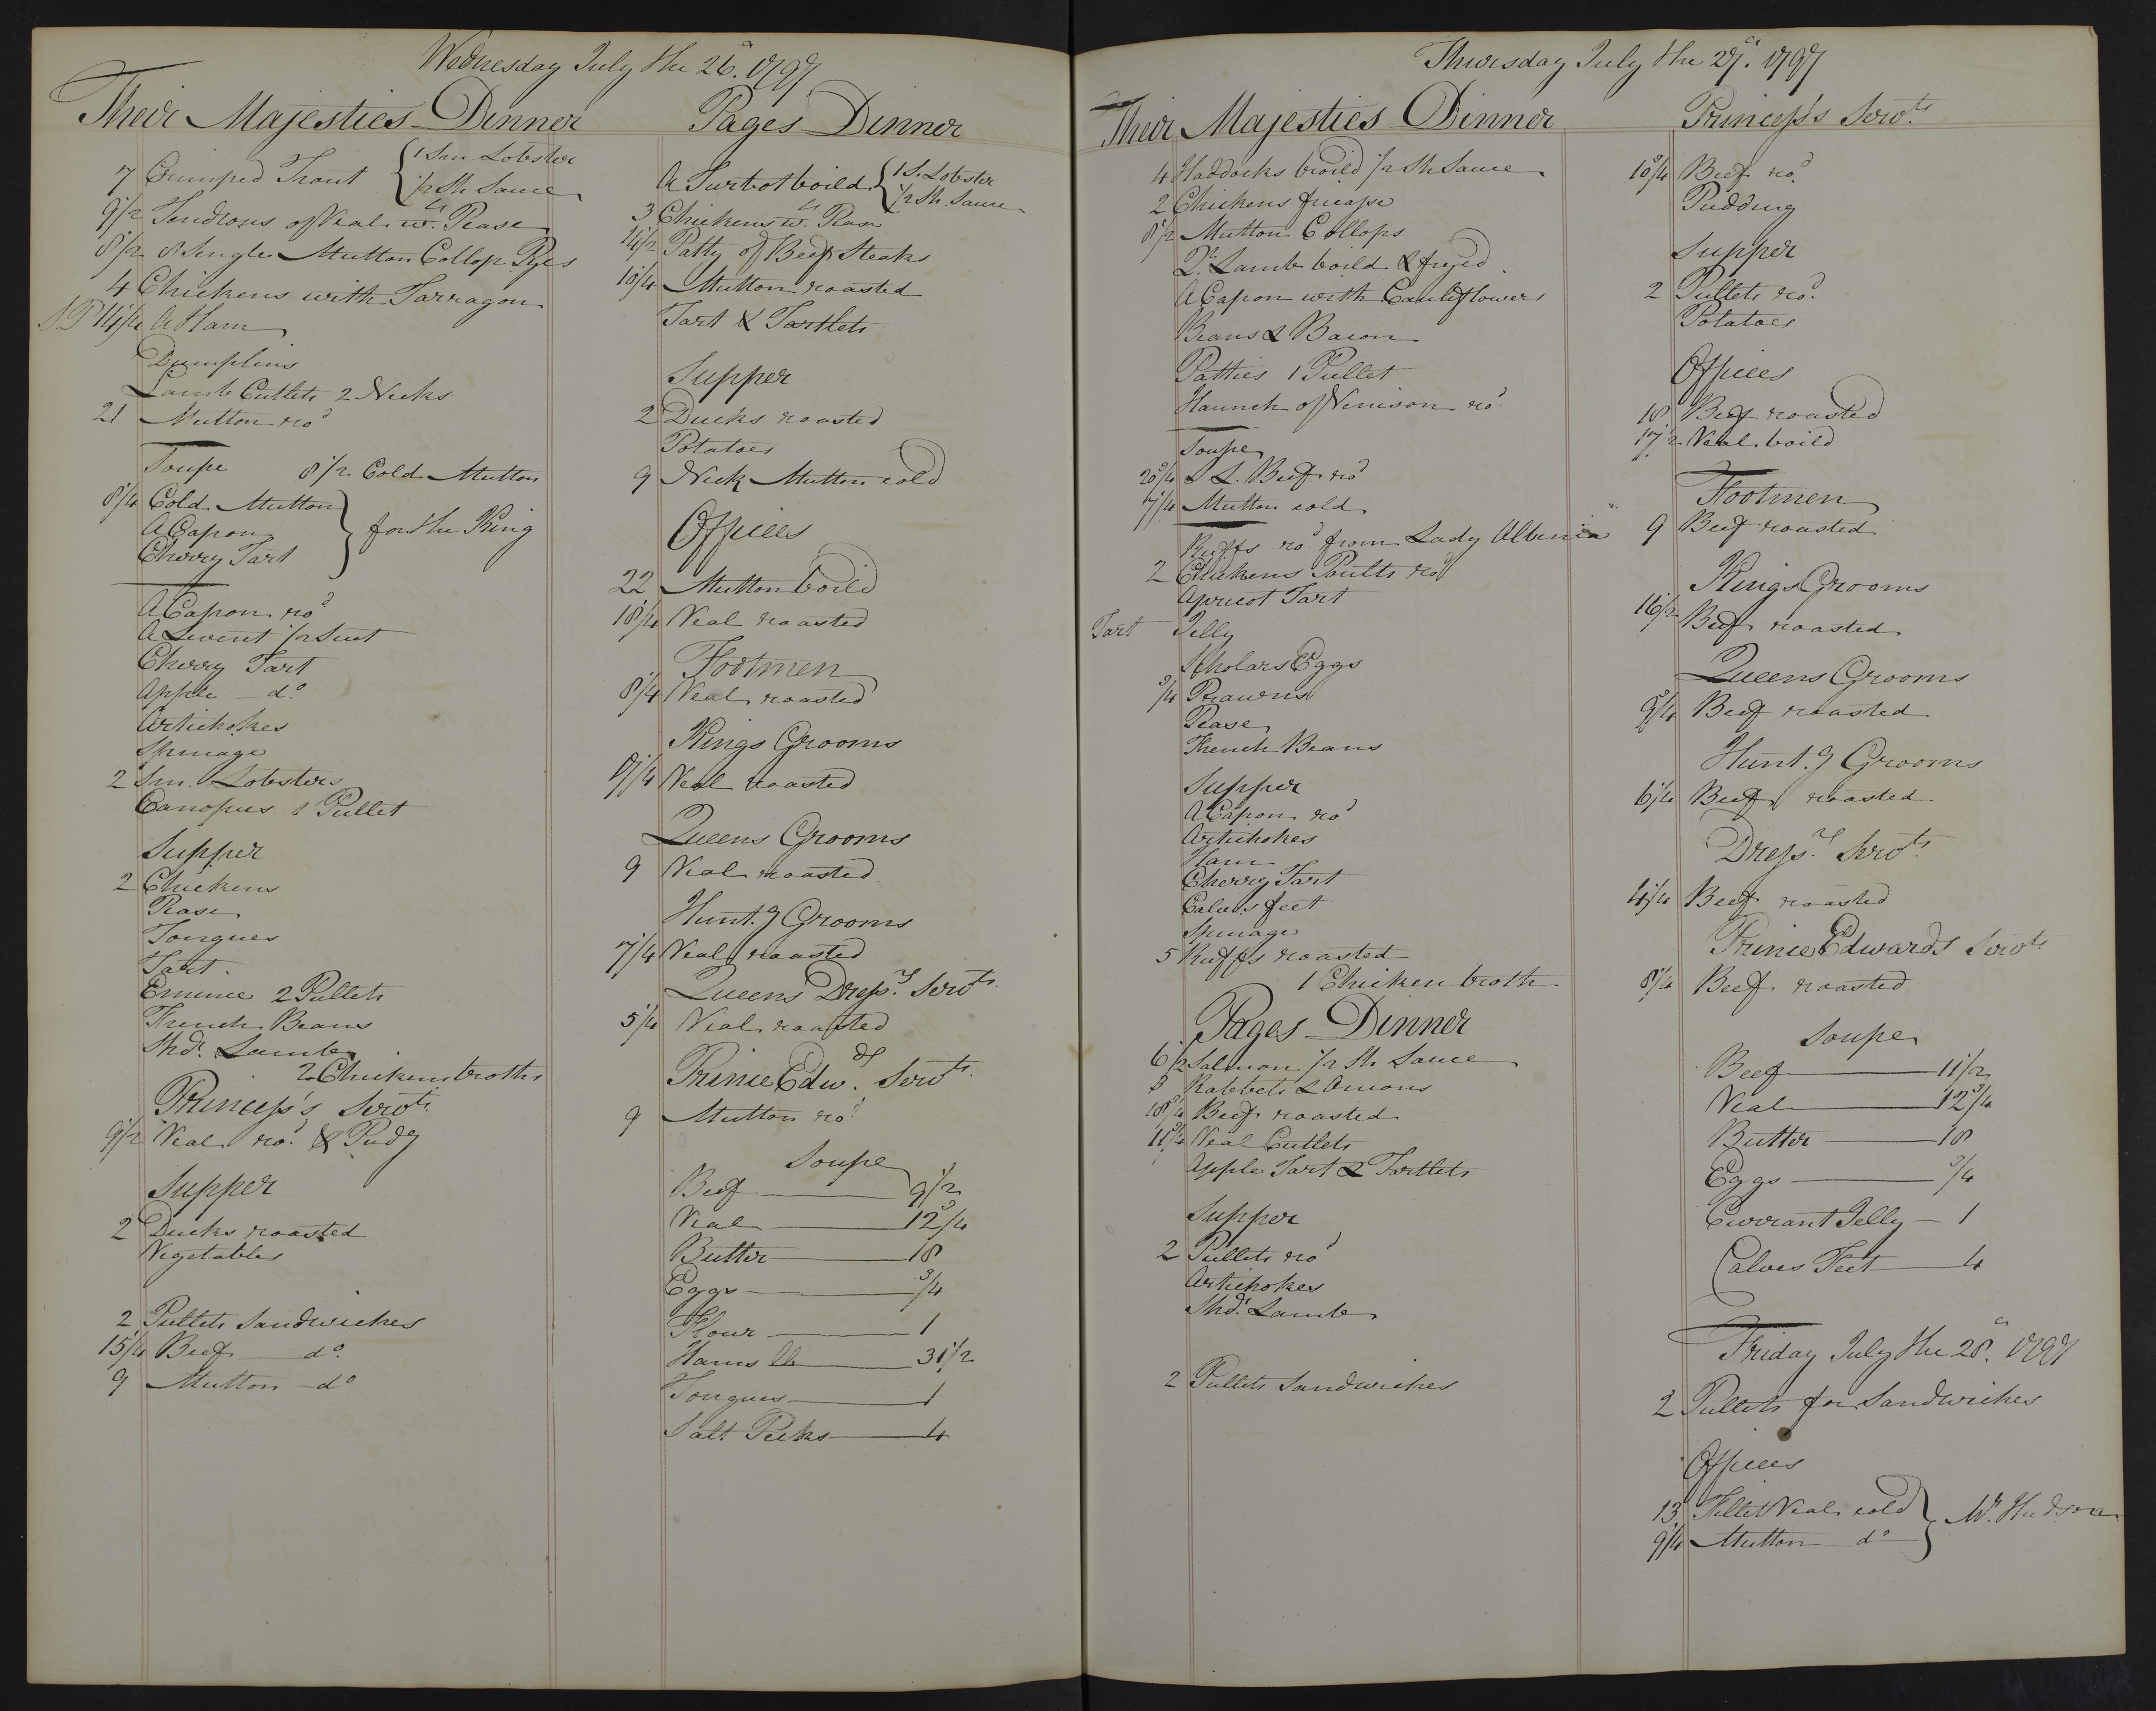 Wednesday July the 26.th 1797
Their Majesties Dinner
7 Crimped Trout { 1 Sm Lobster
½ Sh Sauce
9½ Tendrons of Veal w. Pease
8½ 8 Single Mutton Collop Pyes
4 Chickens with Tarragon
A Ham
Dumplins
Lamb Cutlets 2 Necks
21 Mutton ro.d
Soupe 8½ Cold Mutton
8¼ Cold Mutton
A Capon } for the King
Cherry Tart
A Capon ro.d
A Leveret ½ Suet
Cherry Tart
Apple d.o
Artichokes
Spinage
2 Sm. Lobsters
Canopies 1 Pullet
Supper
2 Chickens
Pease
Tongues
Tart
Emince 2 Pullets
French Beans
Shd.r Lamb
2 Chickens broths
Princess's Serv.ts
9½ Veal ro.d & Pud.g
Supper
2 Ducks roasted
Vegetables
2 Pullets Sandwiches
15¼ Beef d.o
9 Mutton d.o
Pages Dinner
A Turbot boild { 1 S. Lobster
½ Sh. Sauce
3 Chickens w. Pease
Patty of Beef Steaks
10¼ Mutton roasted
Tart & Tartlets
Supper
2 Ducks roasted
Potatoes
9 Neck Mutton cold
Offices
22 Mutton boild
18¼ Veal roasted
Footmen
8¼ Veal roasted
Kings Grooms
17¼ Veal roasted
Queens Grooms
9 Veal roasted
Hunt.g Grooms
7¼ Veal roasted
Queens Dress.rs Serv.ts
5¼ Veal roasted
Prince Edw.ds Serv.ts
9 Mutton ro.d
Soupe
Beef 9½
Veal 12¾
Butter 18
Eggs ¾
Flour 1
Hams lb 31½
Tongues 1
Salt Peeks 4
Thursday July the 27.th 1797
Their Majesties Dinner
4 Haddocks broild ½ Sh Sauce
2 Chickens fricasse
8½ Mutton Collops
Q.r Lamb boild & fryed
A Capon with Cauliflowers
Beans & Bacon
Patties 1 Pullet
Haunch of Venison ro.d
Soupe
20¾ S L. Beef ro.d
7¼ Mutton cold
Ruffs ro.d from Lady Albinia
2 Chickens Poults ro.d
Apricot Tart
Tart Jelly
Scholars Eggs
¾ Prawns
Pease
French Beans
Supper
A Capon ro.d
Artichokes
Ham
Cherry Tart
Calves feet
Spinage
5 Ruffs roasted
1 Chicken broth
Pages Dinner
6½ Salmon ½ Sh Sauce
Rabbets & Onions
18¾ Beef roasted
11¾ Veal Cutlets
Apple Tart & Tartlets
Supper
2 Pullets ro.d
Artichokes
Shd.r Lamb
2 Pullets Sandwiches
Princess's Serv.ts
10¾ Beef ro.d
Pudding
Supper
2 Pullets ro.d
Potatoes
Offices
18 Beef roasted
17½ Veal boild
Footmen
9 Beef roasted
Kings Grooms
16½ Beef roasted
Queens Grooms
9¾ Beef roasted
Hunt.g Grooms
6¼ Beef roasted
Dress.rs Serv.ts
4¼ Beef roasted
Prince Edwards Serv.ts
8¼ Beef roasted
Soupe
Beef 11½
Veal 12¾
Butter 18
Eggs ¾
Currant Jelly 1
Calves Feet 4
Friday July the 28.th 1797
2 Pullets for Sandwiches
Offices
13 Fillet Veal cold } M.r Hudson
9¼ Mutton d.o